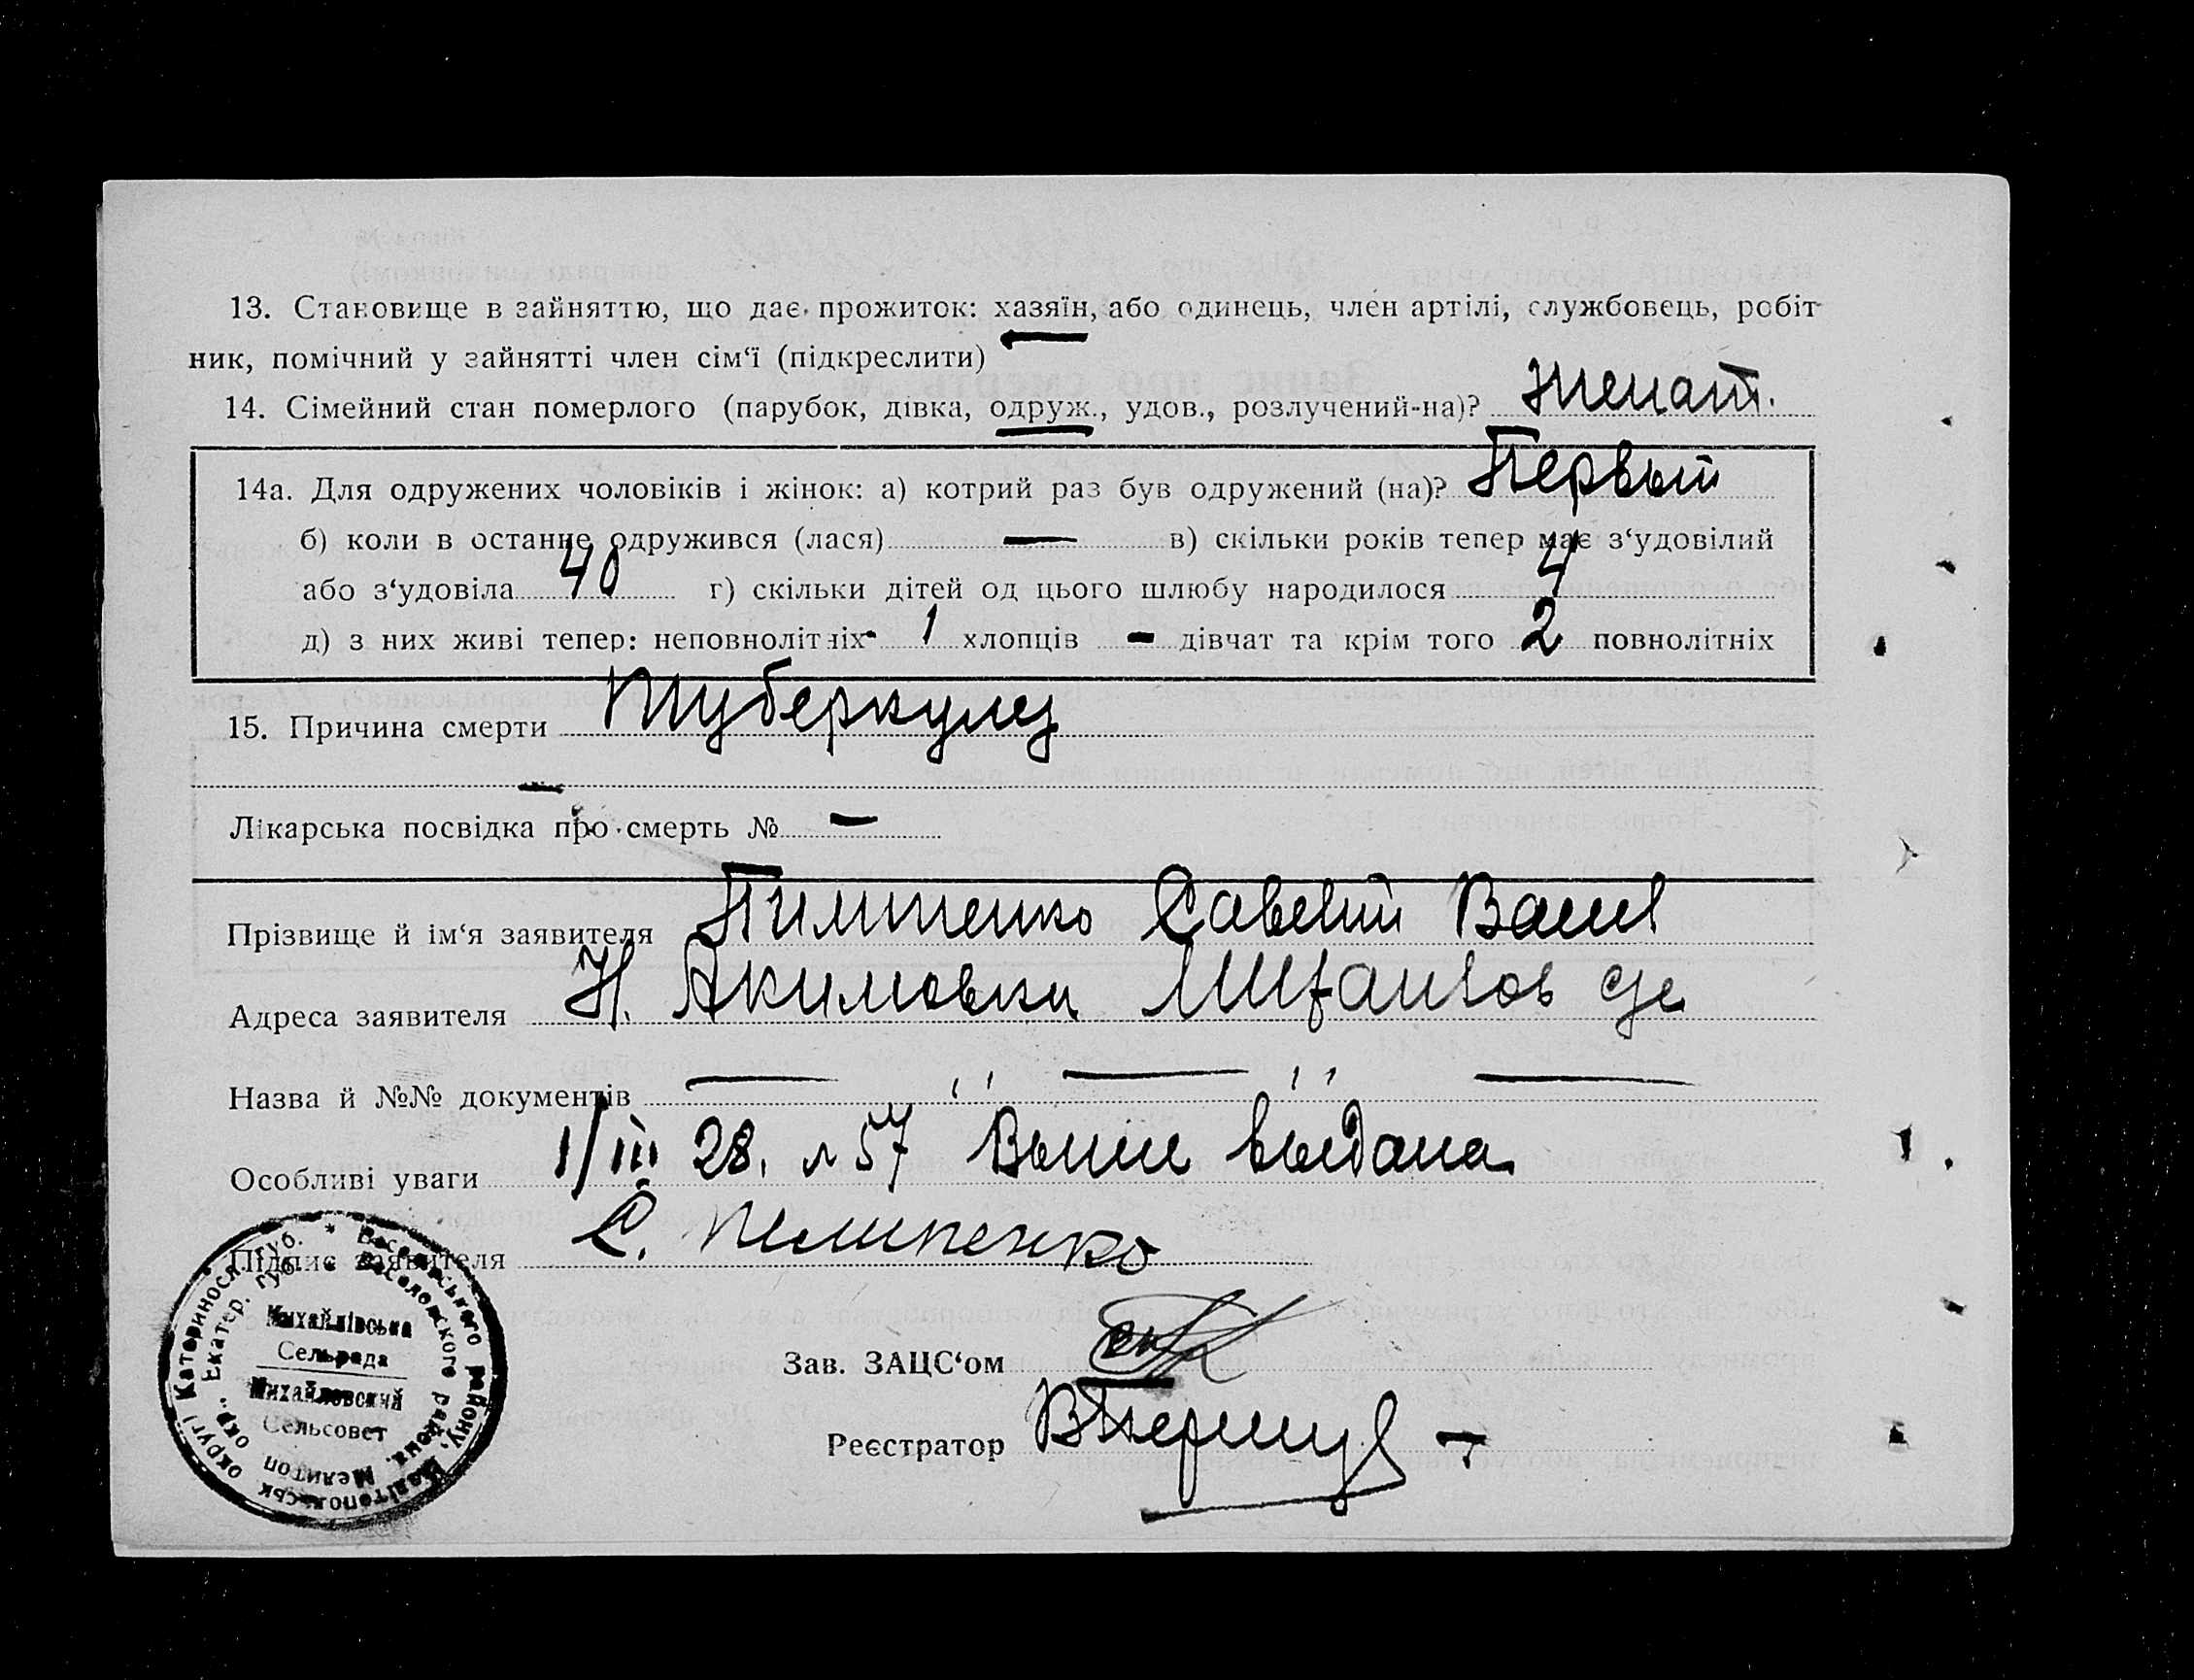 13. Становище в зайняттю, що дає прожиток: хазяїн, або одинець, член артілі, службовець, робіт-
ник, помічний у зайнятті член сім‘ї (підкреслити)
14. Сімейний стан померлого (парубок, дівка, одруж., удов., розлучений-на)? Женат.
14а. Для одружених чоловіків і жінок: а) котрий раз був одружений (на)? Первый
б) коли в останнє одружився (лася) — в) скільки років тепер має з‘удовілий
або з‘удовіла 40 г) скільки дітей од цього шлюбу народилося 4
д) з них живі тепер: неповнолітніх 1 хлопців — дівчат та крім того 2 повнолітніх
15. Причина смерти Туберкулез
—
Лікарська посвідка про смерть № —
Прізвище й ім‘я заявителя Пилипенко Савелий Васил
Адреса заявителя Н. Акимовки
Назва й №№ документів — " — " —
Особливі уваги 1/III 28. № 57 выдана
Підпис заявителя С. Пилипенко
Зав. ЗАЦС‘ом
Реєстратор
* Веселовського району, Мелітопольськ. округі Катеринос. губ.
* Веселовского района, Мелитоп. окр., Екатер. губ.
Михайлівська
Сельрада
Михайловский
Сельсовет